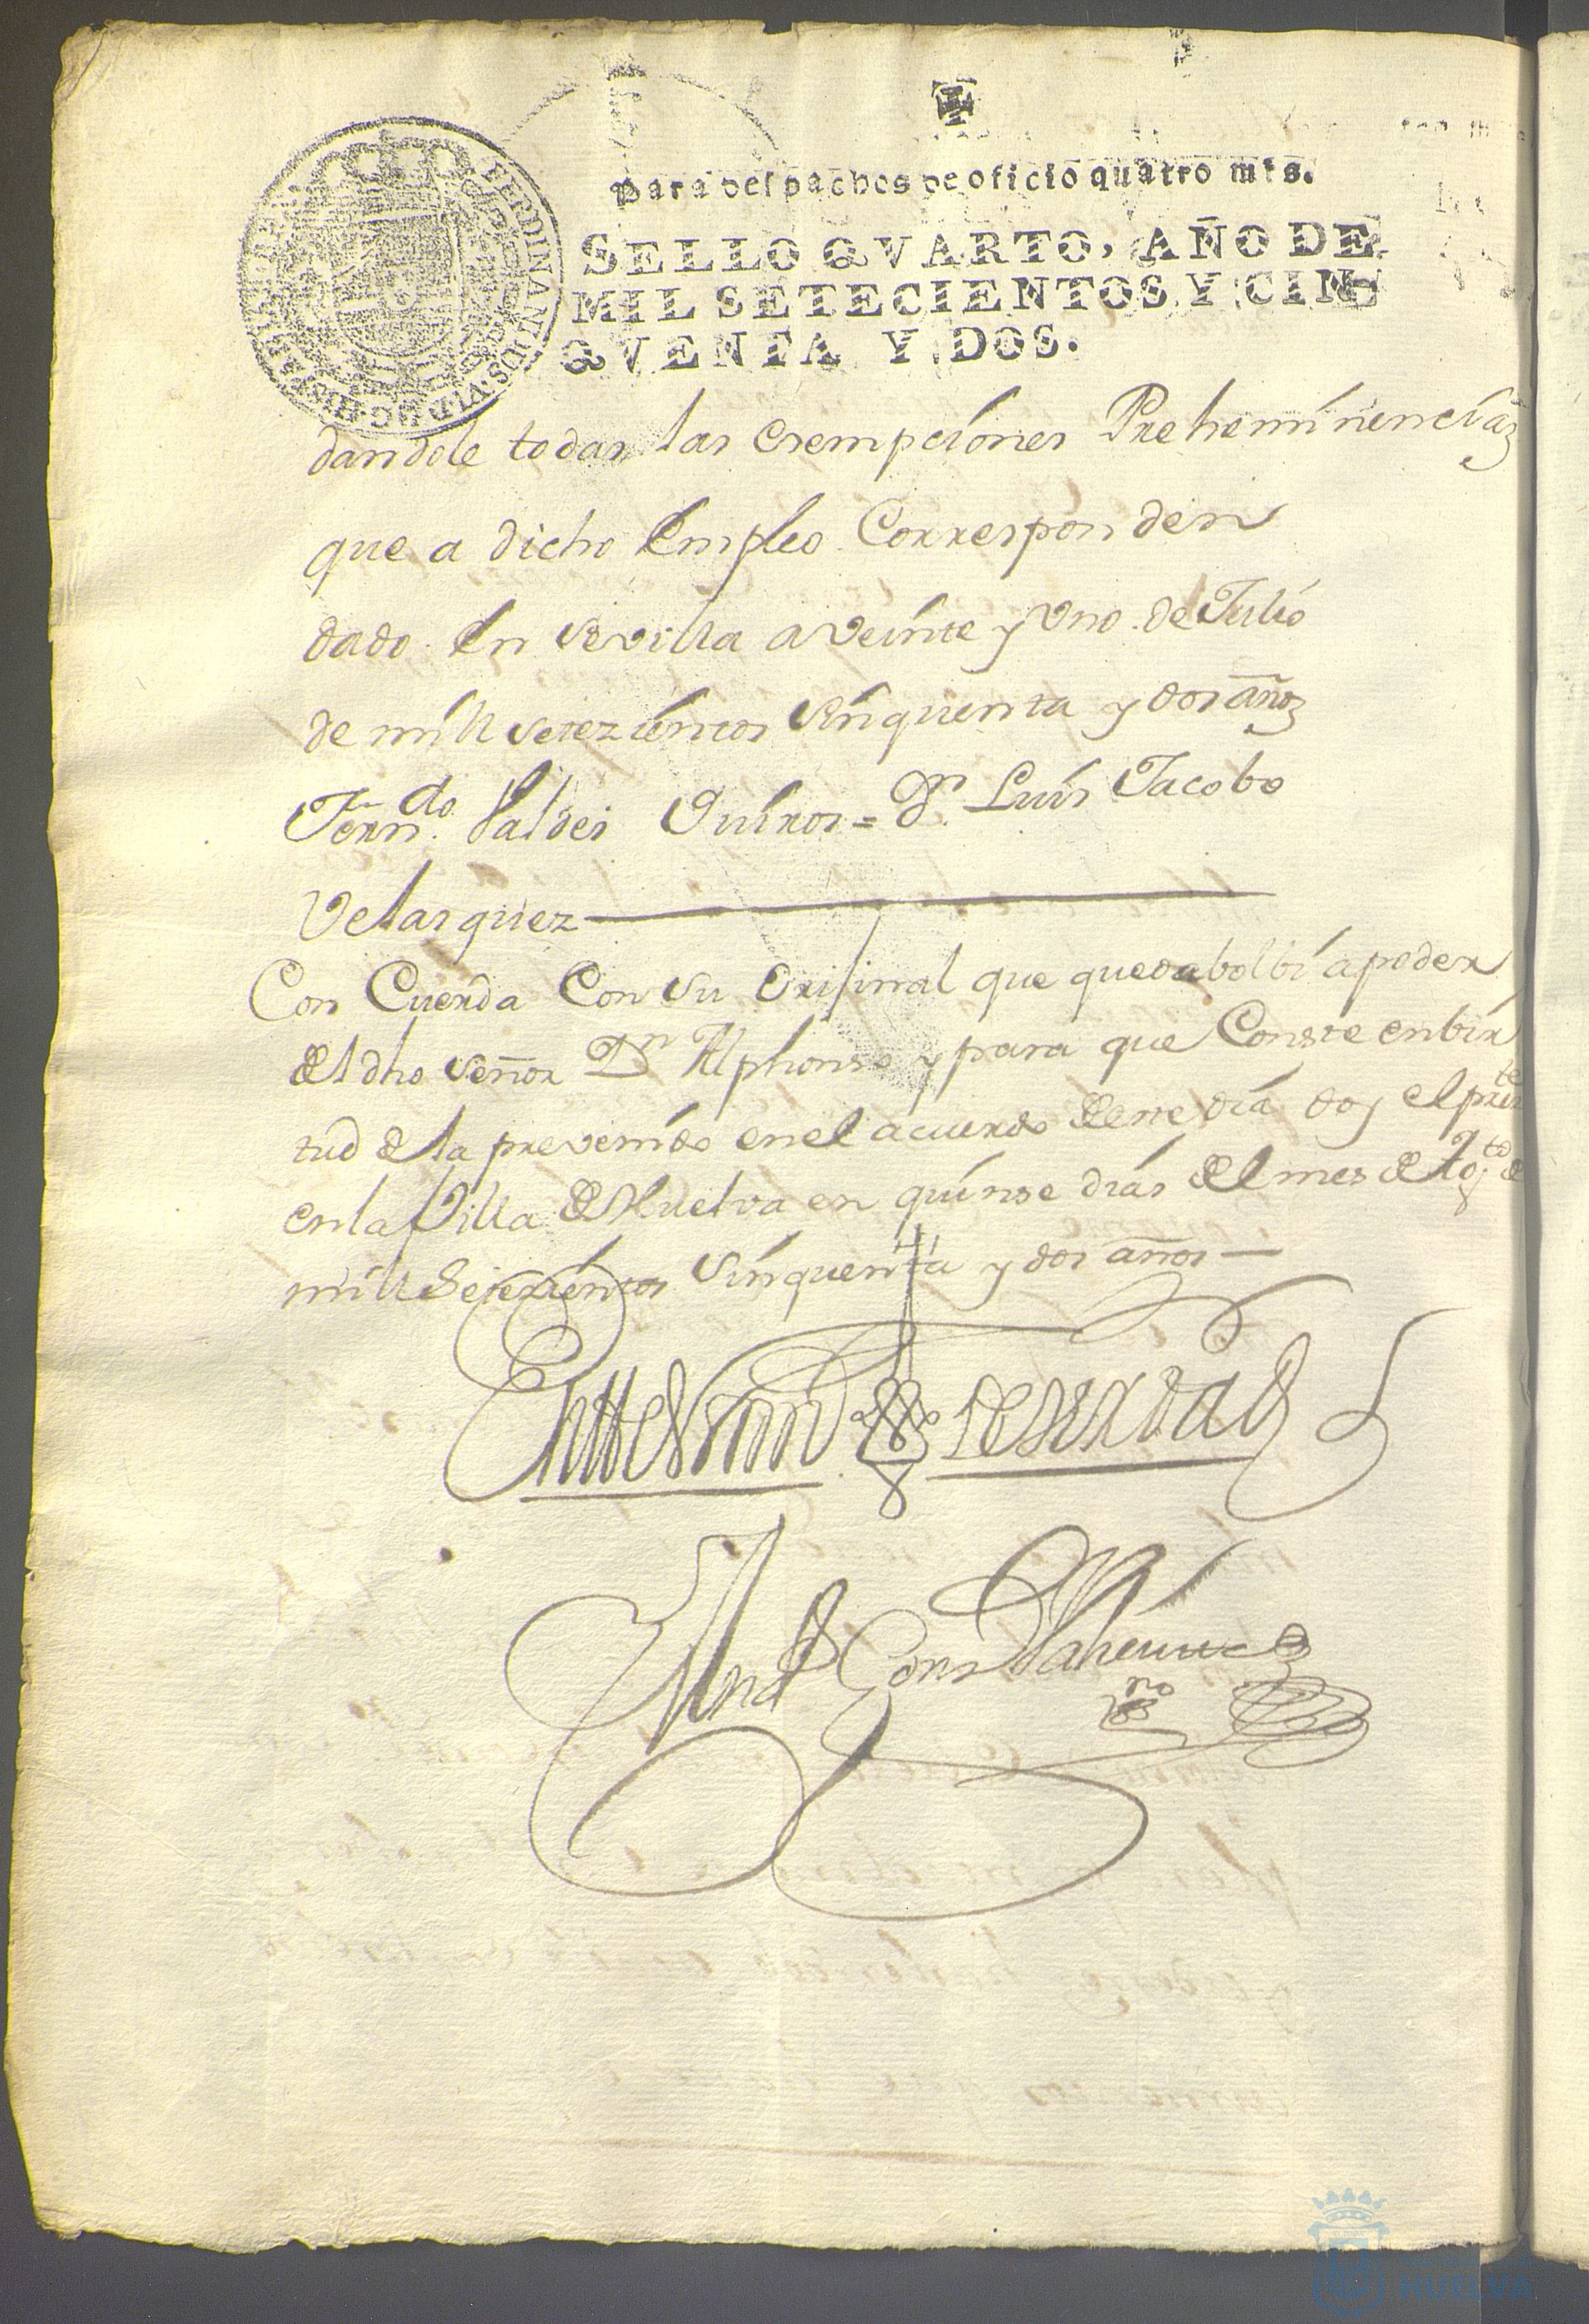 Para despachos de oficio quatro mrs.
SELLO QVARTO, AÑO DE
MIL SETECIENTOS Y CIN-
QVENTA Y DOS.
dandole todas las exempciones Preheminencias
que a dicho Empleo Corresponden
dado en Sevilla a veinte y uno de Julio
de mill setezientos sinquenta y dos años
Fernn.do Valdes Quiros = Dn. Luis Jacobo
Velasquez
Con Cuerda Con su orijinal que que bolbi a poder
del dho señor Dn Alphonso y para que Conste en bir
tud de la prevenido en el acuerdo de este dia doy el prete
en la Villa de Huelva en quinse dias del mes de Agto de
mill setezientos sinquenta y dos años
En testim de verdad
Dieg
HUELVA